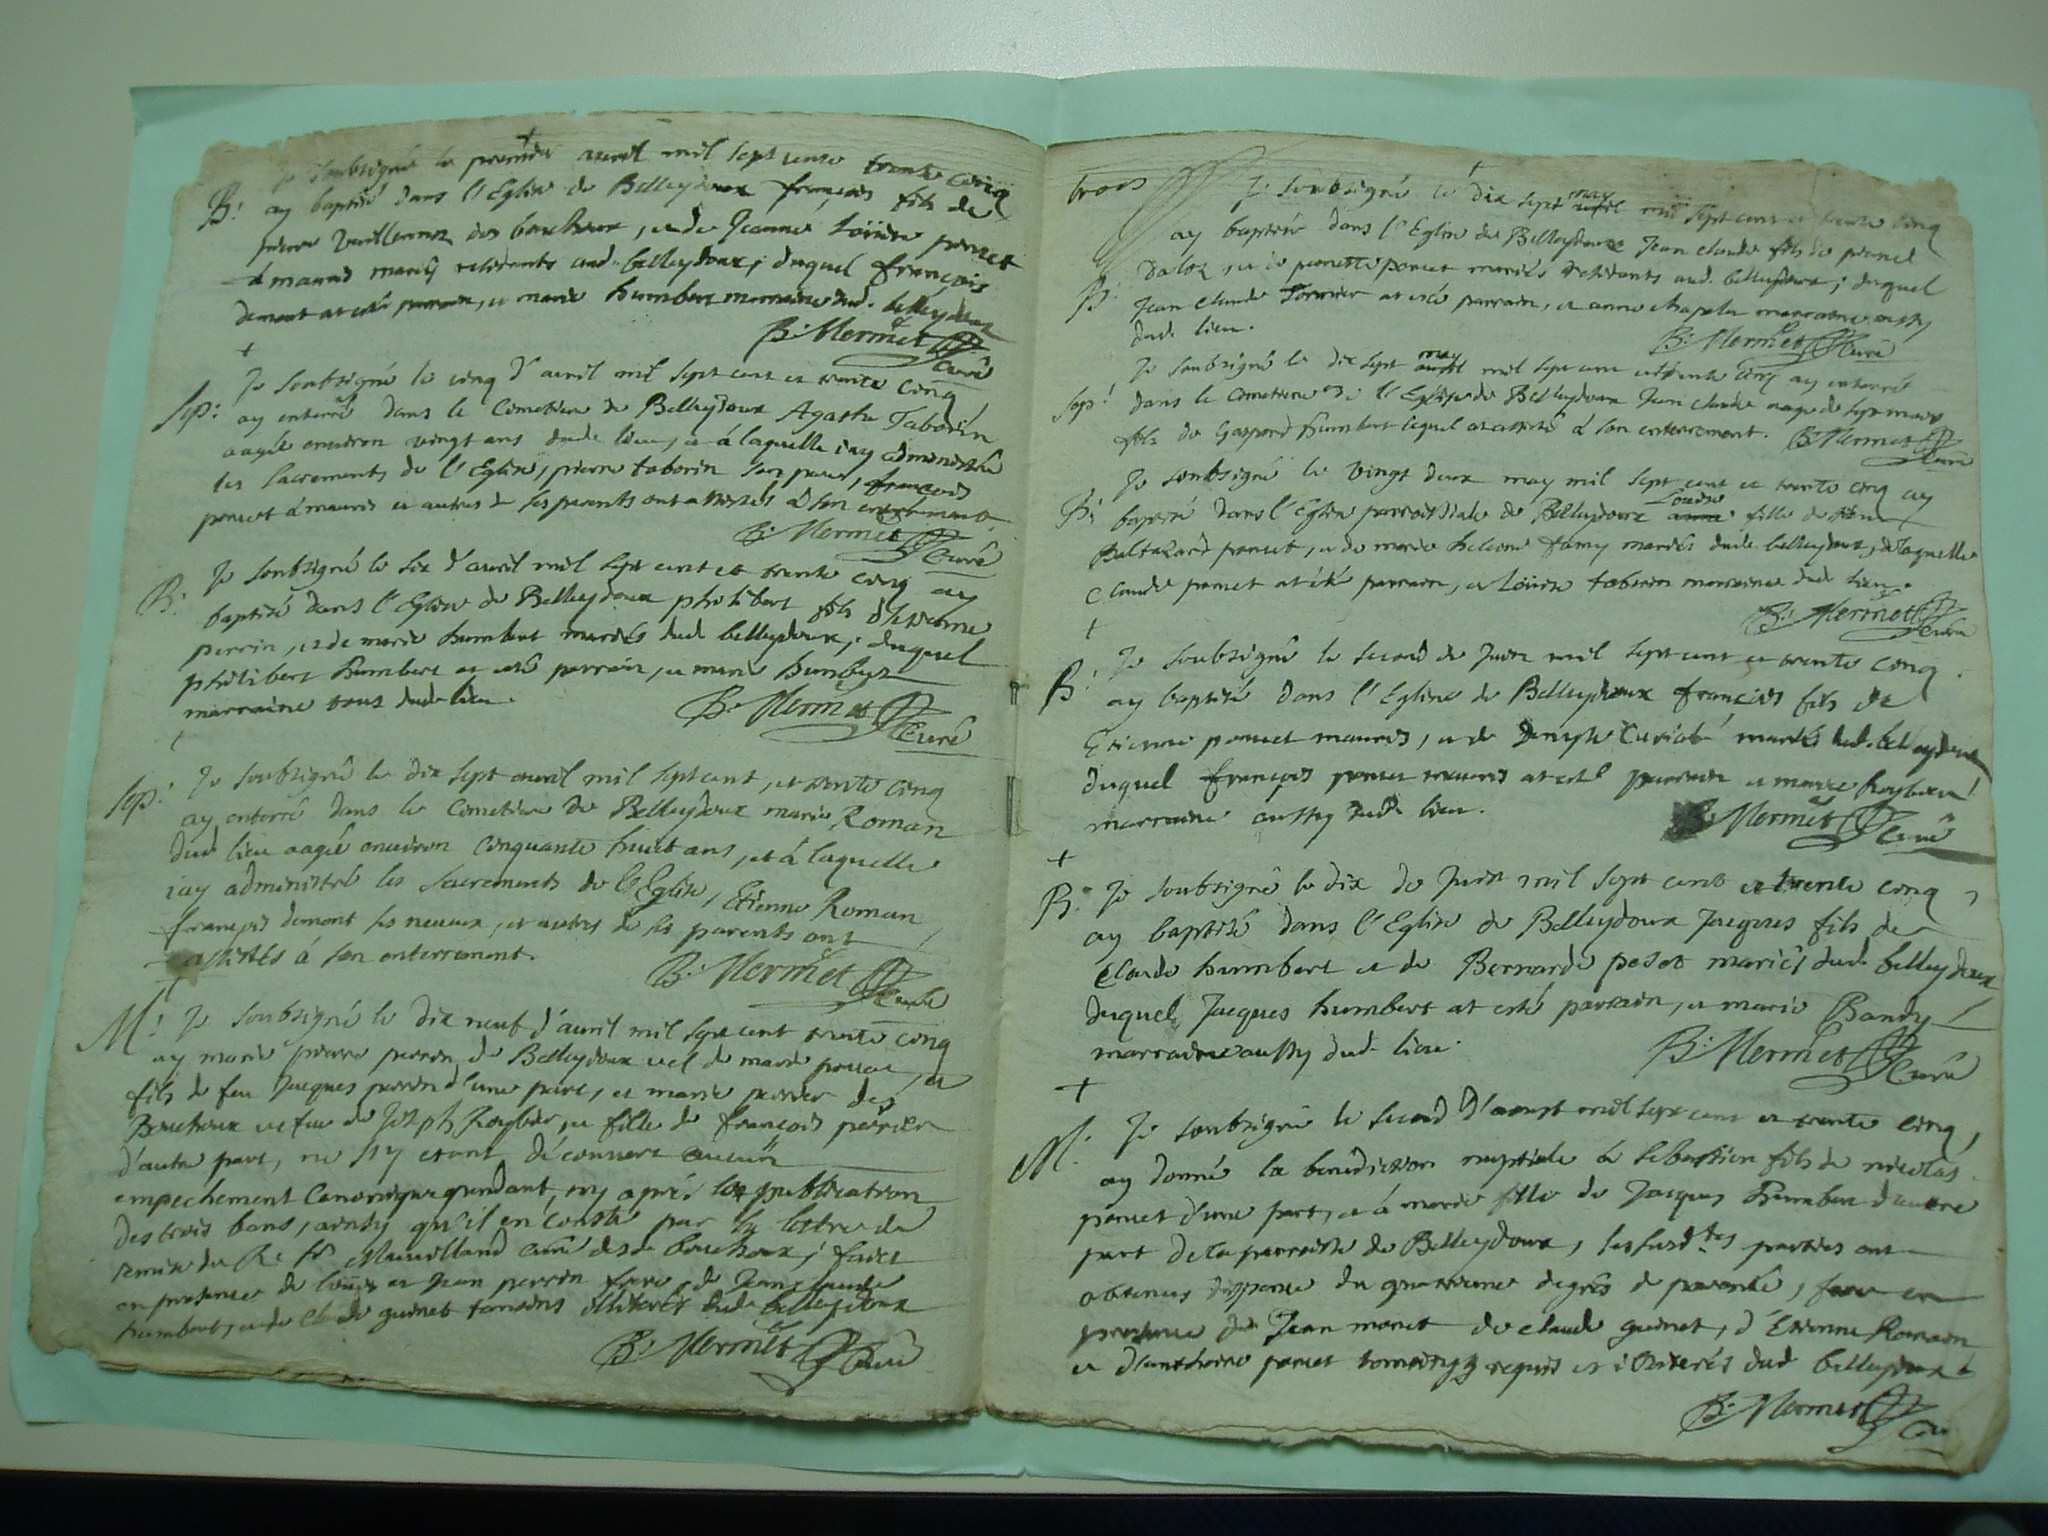 Je soubsigné le premier avril mil sept cent trente cinq
B: ay baptisé dans l'Eglise de Belleydoux françois fils de
pierre Vuillermoz des bouchoux, et de Jeanne Loüise poncet
mariés residents aud. belleydoux; duquel françois
demont at esté parrain, et marie humbert marraine dud. belleydoux
B: Mermet Curé
Je soubsigné le cinq d'avril mil sept cent et trente cinq
Sep: ay enterré dans le Cimetiere de Belleydoux Agathe Taborin
aagée environ vingt ans dud. lieu, et à laquelle iay administré
les sacrements de l'Eglise, pierre taborin son pere, françois
poncet à mauris et autres de ses parents ont assistés à son enterrement.
B: Mermet Curé
Je soubsigné le six d'avril mil sept cent et trente cinq ay
B: baptisé dans l'Eglise de Belleydoux philibert fils d'Estienne
perrin, et de marie humbert mariés dud. belleydoux; duquel
philibert humbert at esté parrain, et marie humbert
marraine tous dud. lieu.
B: Mermet Curé
Je soubsigné le dix sept avril mil sept cent, et trente cinq
Sep: ay enterré dans le Cimetiere de Belleydoux marie Roman
dud. lieu aagée environ cinquante huict ans, et à laquelle
iay administré les sacrements de l'Eglise, Etienne Roman
françois demont ses neveux, et autres de ses parents ont
assistés à son enterrement.
B: Mermet Curé
M: Je soubsigné le dix neuf d'avril mil sept cent trente cinq
ay marié pierre perrin de Belleydoux
fils de feu Jacques perrin d'une part, et marie perrier des
Bouchoux vefve de Joseph, et fille de françois perrier
d'autre part, ne s'y etant découvert aucun
empechement Canonique pendant, ny aprés les publication
des trois bans, ainsy qu'il en conste par la lettre de
remise du Rd Sr Maurilland curé desd. bouchoux; faict
en presence de Loüis et Jean perrin frere, de Jean claude
humbert, et de Claude guinet temoins illiterés dud. belleydoux
B: Mermet Curé
trois
Je soubsigné le dix sept may mil sept cent et trente cinq
ay baptisé dans l'Eglise de Belleydoux Jean claude fils de
B: et de pernette poncet mariés residents aud. belleydoux; duquel
Jean claude at esté parrain, et anne chapelu marraine aussy
dud. lieu.
B: Mermet Curé
Je soubsigné le dix sept may mil sept cent et trente cinq ay enterré
Sep: dans le Cimetiere de l'Eglise de Belleydoux Jean claude aagé de sept mois
fils de Gaspard humbert lequel at assisté à son enterrement. B: Mermet Curé
Je soubsigné le vingt deux may mil sept cent et trente cinq ay
B: baptisé dans l'Eglise parroissiale de Belleydoux Louise fille de
Baltazard poncet, et de marie helene famy mariés dud. belleydoux, de laquelle
Claude poncet at été parrain, et Loüise taborin marraine dud. lieu.
B: Mermet Curé
Je soubsigné le second de Juin mil sept cent et trente cinq
B: ay baptisé dans l'Eglise de Belleydoux françois fils de
Etienne poncet mauris, et de Denyse mariés dud. belleydoux
duquel françois poncet mauris at esté parrain et marie
marraine aussy dud. lieu.
B: Mermet Curé
B: Je soubsigné le dix de Juin mil sept cent et trente cinq
ay baptisé dans l'Eglise de Belleydoux Jacques fils de
Claude humbert et de Bernarde pesot mariés dud. belleydoux
duquel Jacques humbert at esté parrain, et marie Bandy
marraine aussy dud. lieu.
B: Mermet Curé
M. Je soubsigné le second d'aoust mil sept cent et trente cinq,
ay donné la benediction nuptiale à sebastien fils de nicolas
poncet d'une part, et à marie fille de Jacques humbert d'autre
part de la parroisse de Belleydoux, les susd.tes parties ont
obtenus dispense du quatrieme degrés de parenté, faict en
presence de Jean monet de claude guinet, d'Etienne Roman
et d'anthoine poncet temoins requis et illiterés dud. belleydoux
B: Mermet Curé